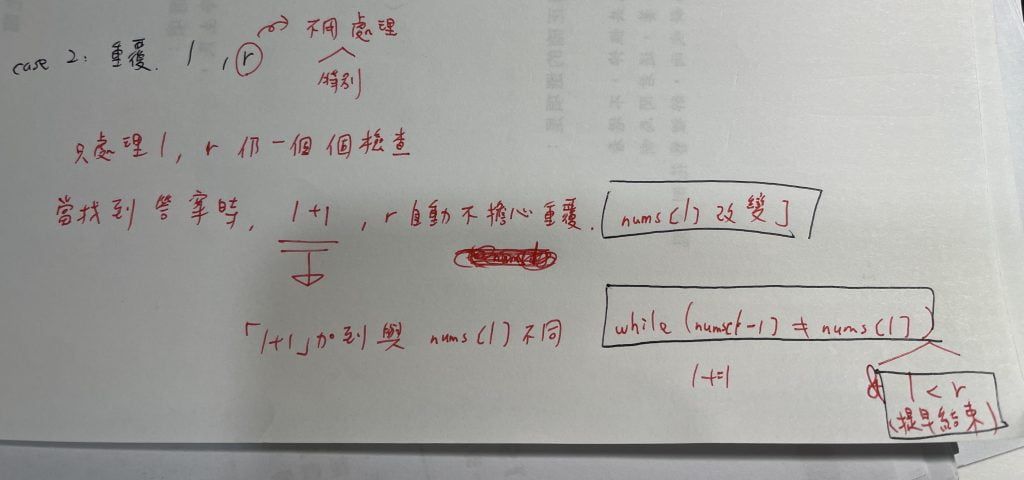 case 2: 重覆. l, r → 不用處理
特別
只處理 l, r 仍一個個檢查
當找到答案時, l+1, r自動不擔心重覆. nums[l]改變]
「l+1」加到與 nums[l]不同 while (nums[l-1] ≠ nums[l])
l+=1 & l<r
(提早結束)